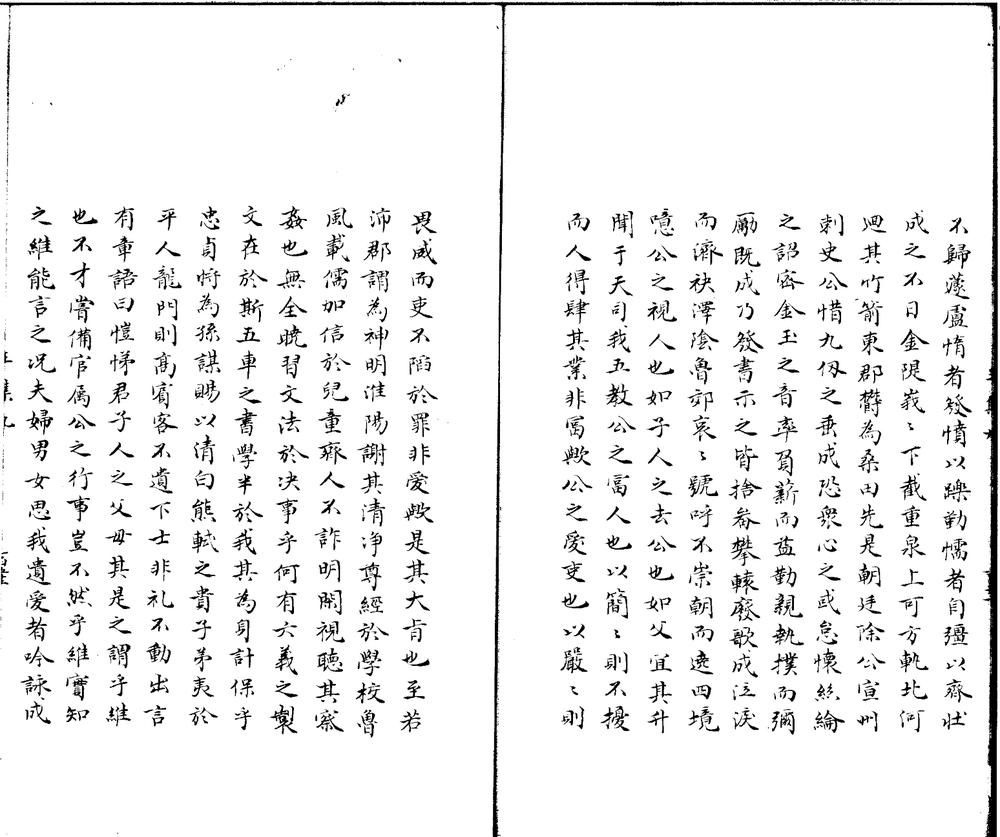 不歸蘧廬惰者發憤以躁勤懦者自彊以齊壯
成之不日金隄峩〻下截重泉上可方軌北河
迴其竹箭東郡欝為桑田先是朝廷除公宣州
刺史公惜九仭之垂成恐衆心之或怠懷絲綸
之詔密金玉之音率負薪而益勤親執撲而彌
勵既成乃發書示之皆捨畚攀轅廢歌成泣淚
而濟袂澤陰魯郊哀〻號呼不崇朝而遶四境
噫公之視人也如子人之去公也如父宜其升
聞于天司我五教公之富人也以簡〻則不擾
而人得肆其業非富歟公之愛吏也以嚴〻則
畏威而吏不陷於罪非愛歟是其大㫖也至若
沛郡謂為神明淮陽謝其清浄尊經於學校魯
風載儒加信於兒童齊人不詐明開視聽其察
姦也無全曉習文法於决事乎何有六義之製
文在於斯五車之書學半於我其為身計保乎
忠貞將為孫謀賜以清白熊軾之貴子弟夷於
平人龍門則高賓客不遺下士非礼不動出言
有章語曰愷悌君子人之父母其是之謂乎維
也不才嘗備官屬公之行事豈不然乎維實知
之維能言之况夫婦男女思我遺愛者吟詠成